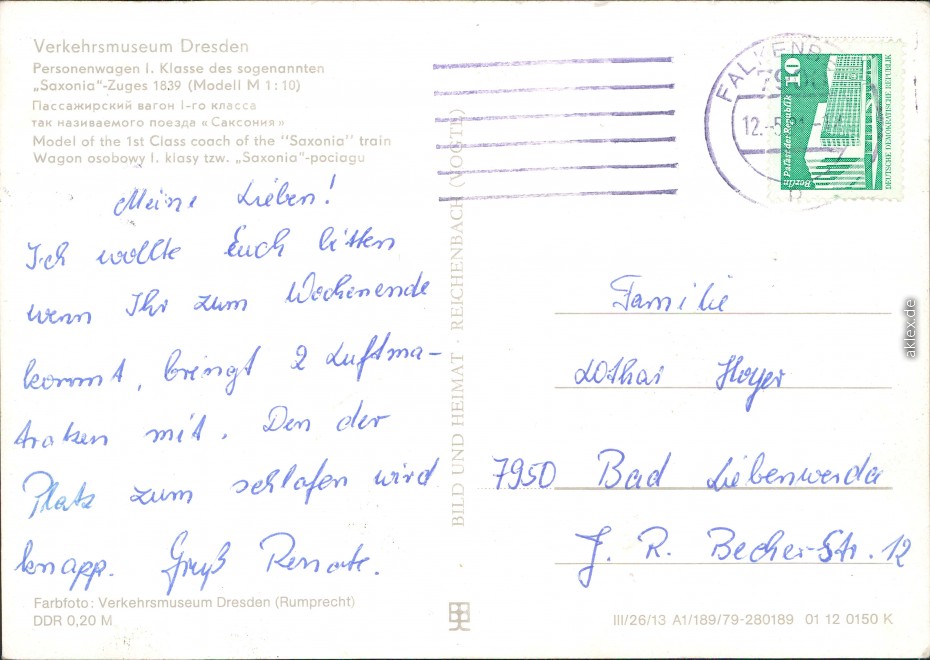 Verkehrsmuseum Dresden
Personenwagen I. Klasse des sogenannten
„Saxonia"-Zuges 1839 (Modell M 1:10)
Пассажирский вагон I-го класса
так називаемого поезда «Саксония»
Model of the 1st Class coach of the "Saxonia" train
Wagon osobowy I. klasy tzw. „Saxonia"-pociagu
Meine Lieben!
Ich wollte Euch bitten
wenn Ihr zum Wochenende
kommt, bringt 2 Luftma-
traken mit. Den der
Platz zum schlafen wird
knapp. Gruß Renate.
Farbfoto: Verkehrsmuseum Dresden (Rumprecht)
DDR 0,20 M
BILD UND HEIMAT · REICHENBACH (VOGTL)
FALKENB
12.-5
b
10
Palast der Republik
Berlin
DEUTSCHE DEMOKRATISCHE REPUBLIK
Familie
Lothar Hoyer
7950 Bad Liebenwerda
J. R. Becher-Str. 12
III/26/13 A1/189/79-280189 01 12 0150 K
aklex.de